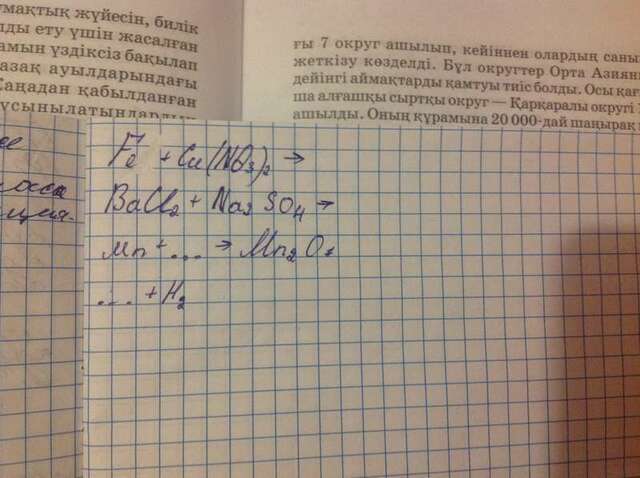 умақтық жүйесін, билік
лды ету үшін жасалған
амын үздіксіз бақылап
азақ ауылдарындағы
Саңадан қабылданған
усынылатындардың
ғы 7 округ ашылып, кейіннен олардың саны
жеткізу көзделді. Бұл округтер Орта Азиян
дейінгі аймақтарды қамтуы тиіс болды. Осы қағ
ша алғашқы сыртқы округ — Қарқаралы округі
ашылды. Оның құрамына 20 000-дай шаңырақ
Fe + Cu(NO3)2 →
BaCl2 + Na2SO4 →
Mn + ... → Mn2O
... + H2